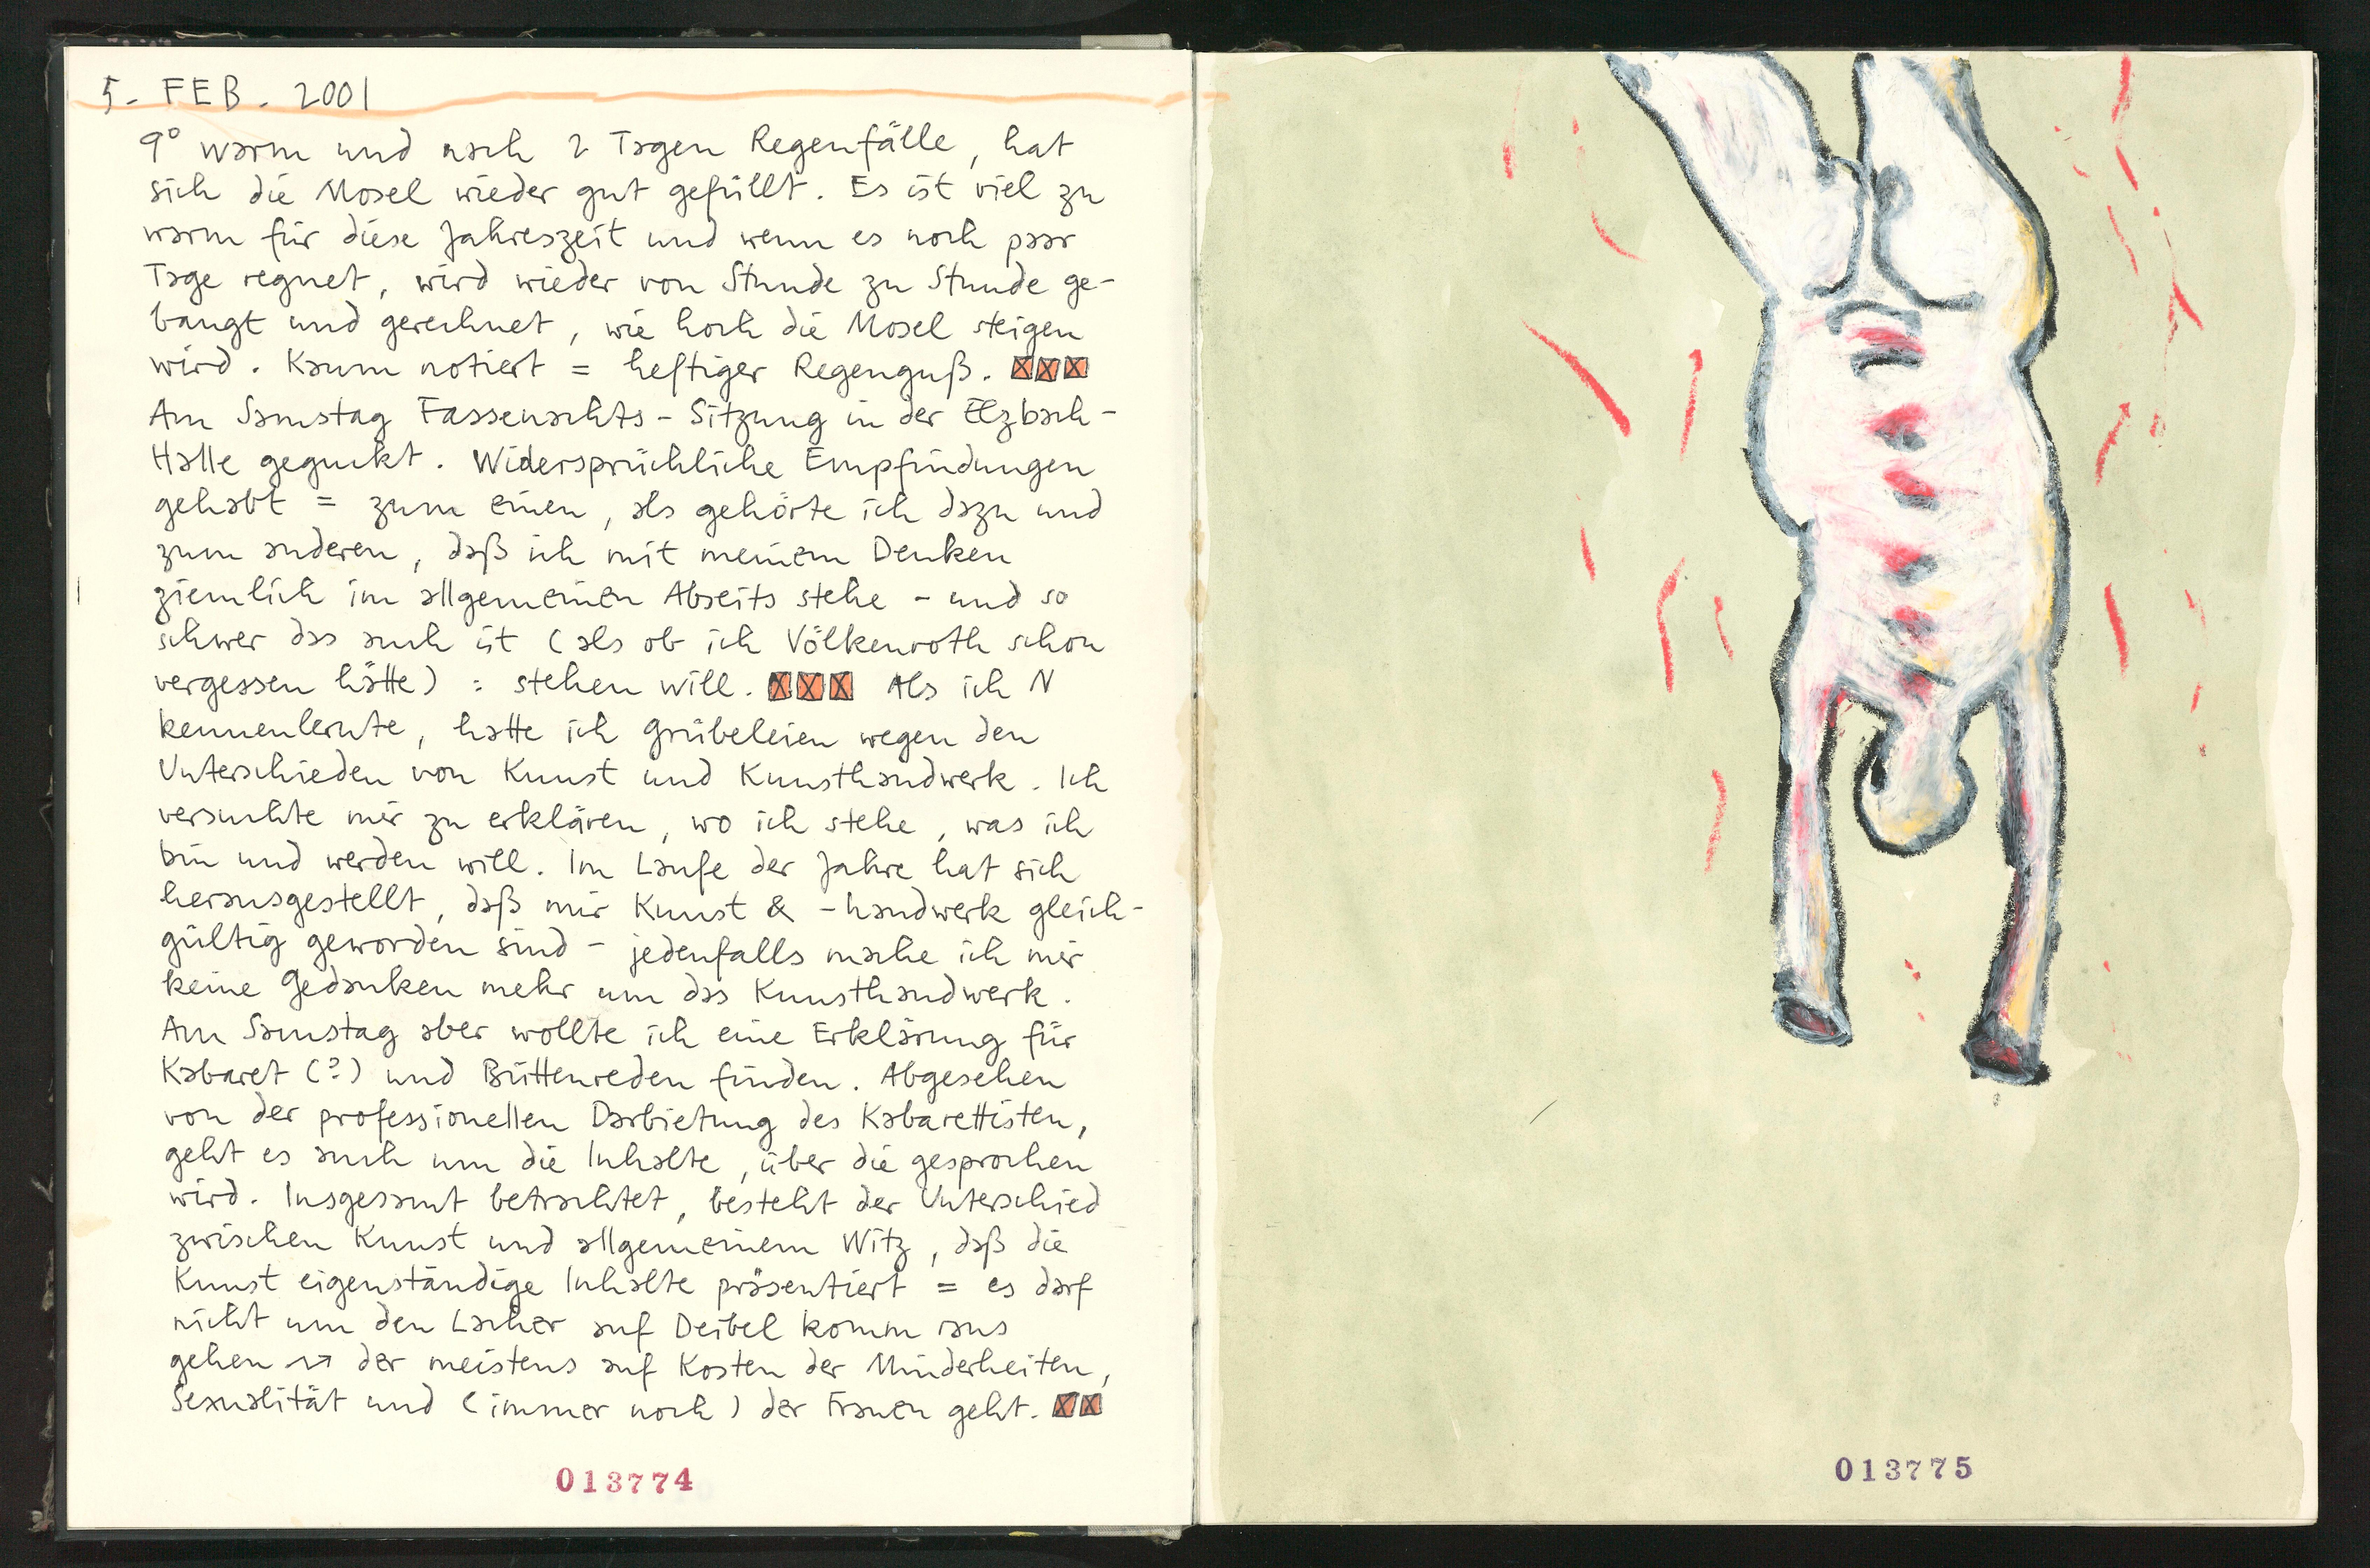 5. FEB. 2001
9° warm und nach 2 Tagen Regenfälle, hat
sich die Mosel wieder gut gefüllt. Es ist viel zu
warm für diese Jahreszeit und wenn es noch paar
Tage regnet, wird wieder von Stunde zu Stunde ge-
bangt und gerechnet, wie hoch die Mosel steigen
wird. Kaum notiert = heftiger Regenguß.
Am Samstag Fassenachts-Sitzung in der Elzbach-
Halle geguckt. Widersprüchliche Empfindungen
gehabt = zum einen, als gehörte ich dazu und
zum anderen, daß ich mit meinem Denken
ziemlich im allgemeinen Abseits stehe - und so
schwer das auch ist (als ob ich Völkenroth schon
vergessen hätte) : stehen will. Als ich N
kennenlernte, hatte ich Grübeleien wegen den
Unterschieden von Kunst und Kunsthandwerk. Ich
versuchte mir zu erklären, wo ich stehe, was ich
bin und werden will. Im Laufe der Jahre hat sich
herausgestellt, daß mir Kunst & -handwerk gleich-
gültig geworden sind - jedenfalls mache ich mir
keine Gedanken mehr um das Kunsthandwerk.
Am Samstag aber wollte ich eine Erklärung für
Kabaret (?) und Büttenreden finden. Abgesehen
von der professionellen Darbietung des Kabarettisten,
geht es auch um die Inhalte, über die gesprochen
wird. Insgesamt betrachtet, besteht der Unterschied
zwischen Kunst und allgemeinem Witz, daß die
Kunst eigenständige Inhalte präsentiert = es darf
nicht um den Lacher auf Deibel komm raus
gehen → der meistens auf Kosten der Minderheiten,
Sexualität und (immer noch) der Frauen geht.
013774
013775